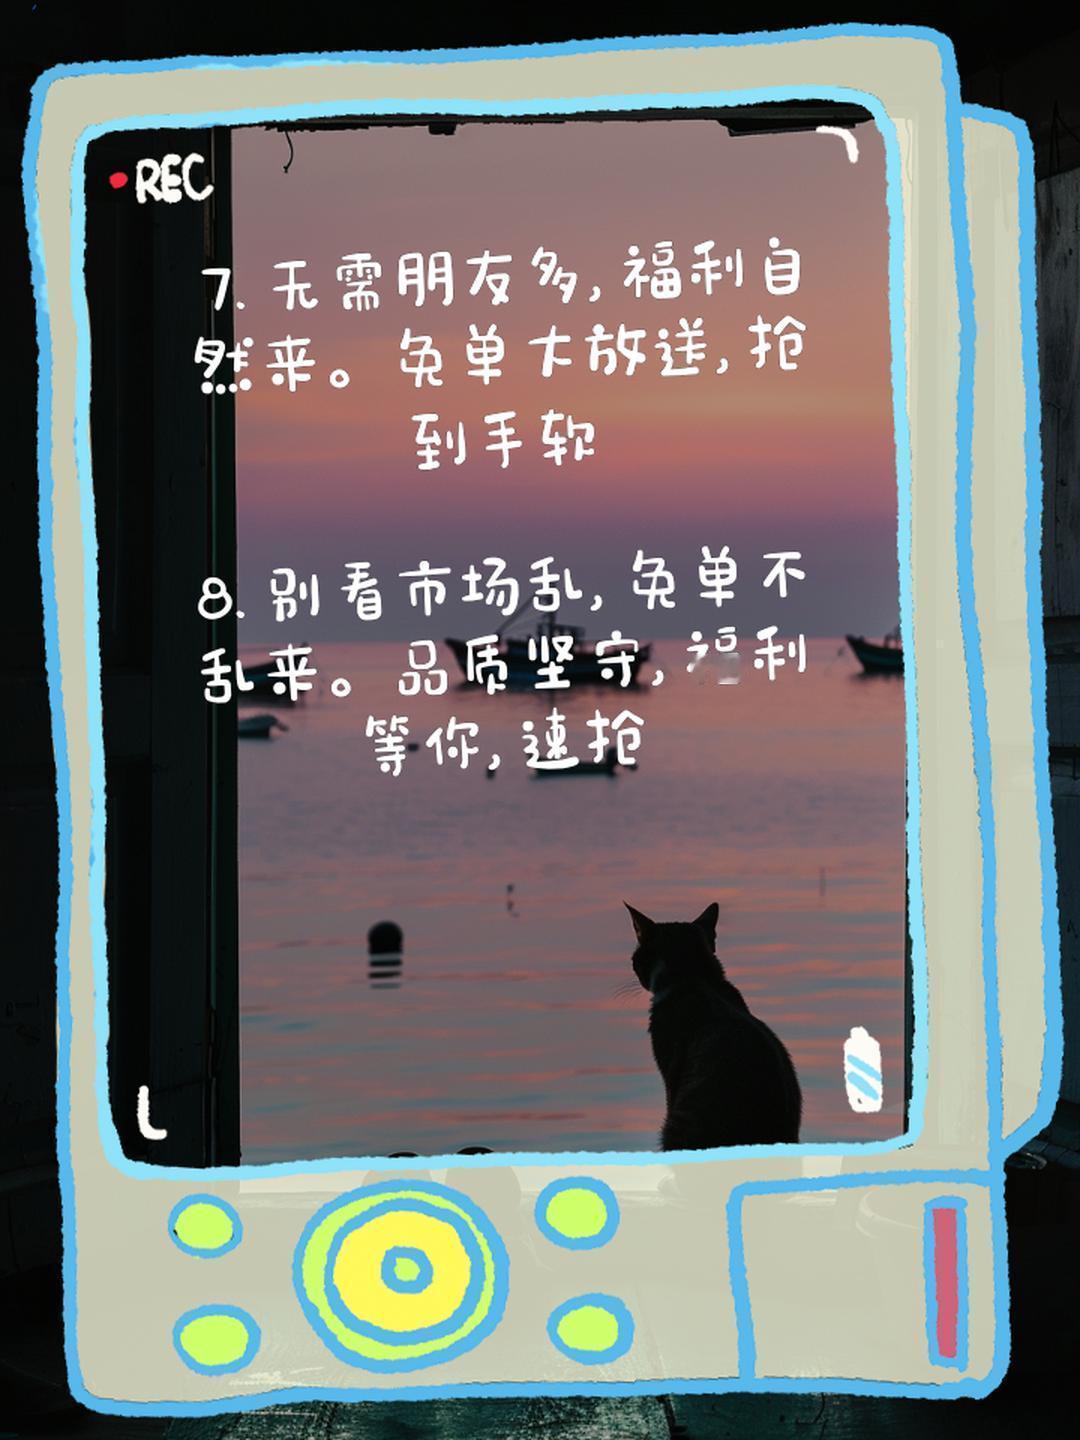 REC
7. 无需朋友多, 福利自
然来。免单大放送, 抢
到手软
8. 别看市场乱, 免单不
乱来。品质坚守, 福利
等你, 速抢